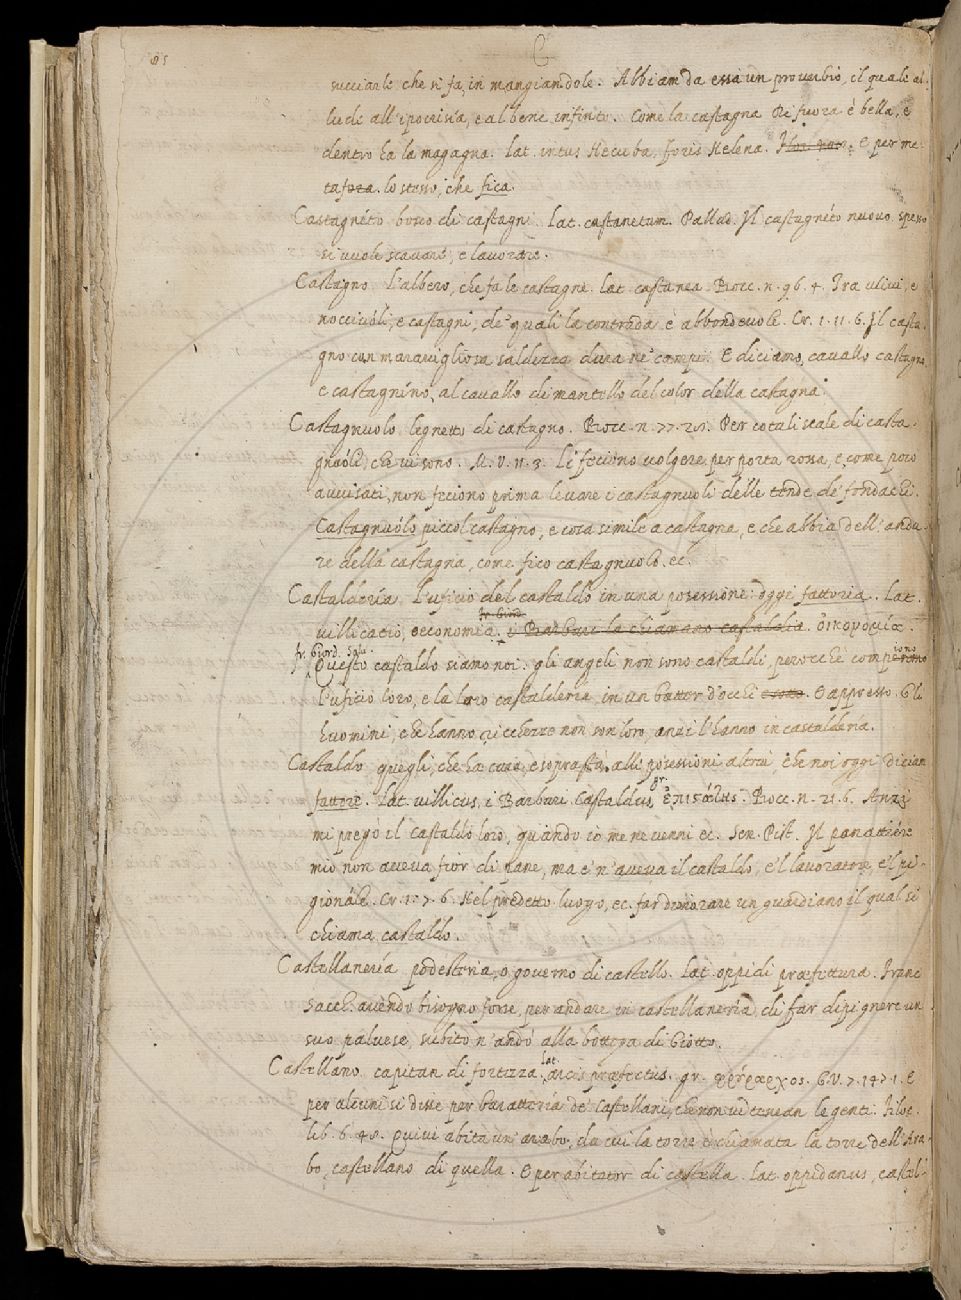 85
C
succiarle che si fa, in mangiandole. Abbiam da essa un proverbio, il quale al
lude all'ipocrisia, e al bene infinto. Come la castagna Di fuora è bella, e
dentro ha la magagna. Lat. intus Hecuba, foris Helena. E per me
tafora. lo stesso, che fica.
Castagnéto bosco di castagni. Lat. castanetum. Pallad. Il castagnéto nuovo spesso
si vuole scavare, e lavorare.
Castagno L'albero, che fa le castagne. Lat. castanea. Bocc. n. 96. 4. Tra ulivi, e
nocciuóli, e castagni, de' quali la contrada è abbondevole. Cr. 1. 11. 6. Il casta
gno con maravigliosa saldezza dura ne' campi. E diciamo, cavallo castagno
e castagníno, al cavallo di mantello del color della castagna.
Castagnuolo legnetto di castagno. Bocc. n. 77. Per cotali scale di casta
gnuóli, che vi sono. M. V. 11. 3. Li feciono volgere per porta rossa, e, come poco
avvisati, non feciono prima levare i castagnuoli delle tende de' fondachi.
Castagnuólo piccol castagno, e cosa simile a castagna, e che abbia dell'anda
re della castagna, come fico castagnuolo. ec.
Castalderia L'uficio del castaldo in una posessione: oggi fattoria. Lat.
fr. Giord.
villicatio, oeconomia. i Barbari la chiamano castaldia. οἰκονομία.
fr. Giord. Salv.
Questo castaldo siamo noi. gli angeli non sono castaldi, perocchè compierono
l'uficio loro, e la loro castalderia, in un batter d'occhi. E appresso. Gli
huomini, che hanno ricchezze non son loro, anzi l'hanno in castalderia.
Castaldo quegli, che ha cura, e soprastà, alle posessioni altrui, che noi oggi diciam
fattore. Lat. villicus, i Barbari Castaldus, gr. ἐπιστάτης. Bocc. n. 21. 6. Anzi
mi pregò il castaldo loro, quando io me ne venni ec. Sen. Pist. Il panattiére
mio non aveva fior di pane, ma e' n'aveva il castaldo, e 'l lavoratore, e 'l pi
gionále. Cr. 1. 7. 6. Nel predetto luogo, ec. far dimorare un guardiano il qual si
chiama castaldo.
Castellanería podesteria, o governo di castello. Lat. oppidi præfettura. Franc
Sacch. avendo bisogno forse, per andare in castellanería, di far dipignere un
suo palvese, subito n'andò alla bottega di Giotto.
Castellano capitan di fortezza. Lat. arcis præfectus. gr. φρούραρχος. G. V. 7. 147. 1. E
per alcuni si disse per barattería de' Castellani, che non vi tenean le genti. Filoc.
lib. 6. 48. Quivi abita un arabo, da cui la torre è chiamata la torre dell'Ara
bo, castellano di quella. E per abitator di castella. Lat. oppidanus, castel